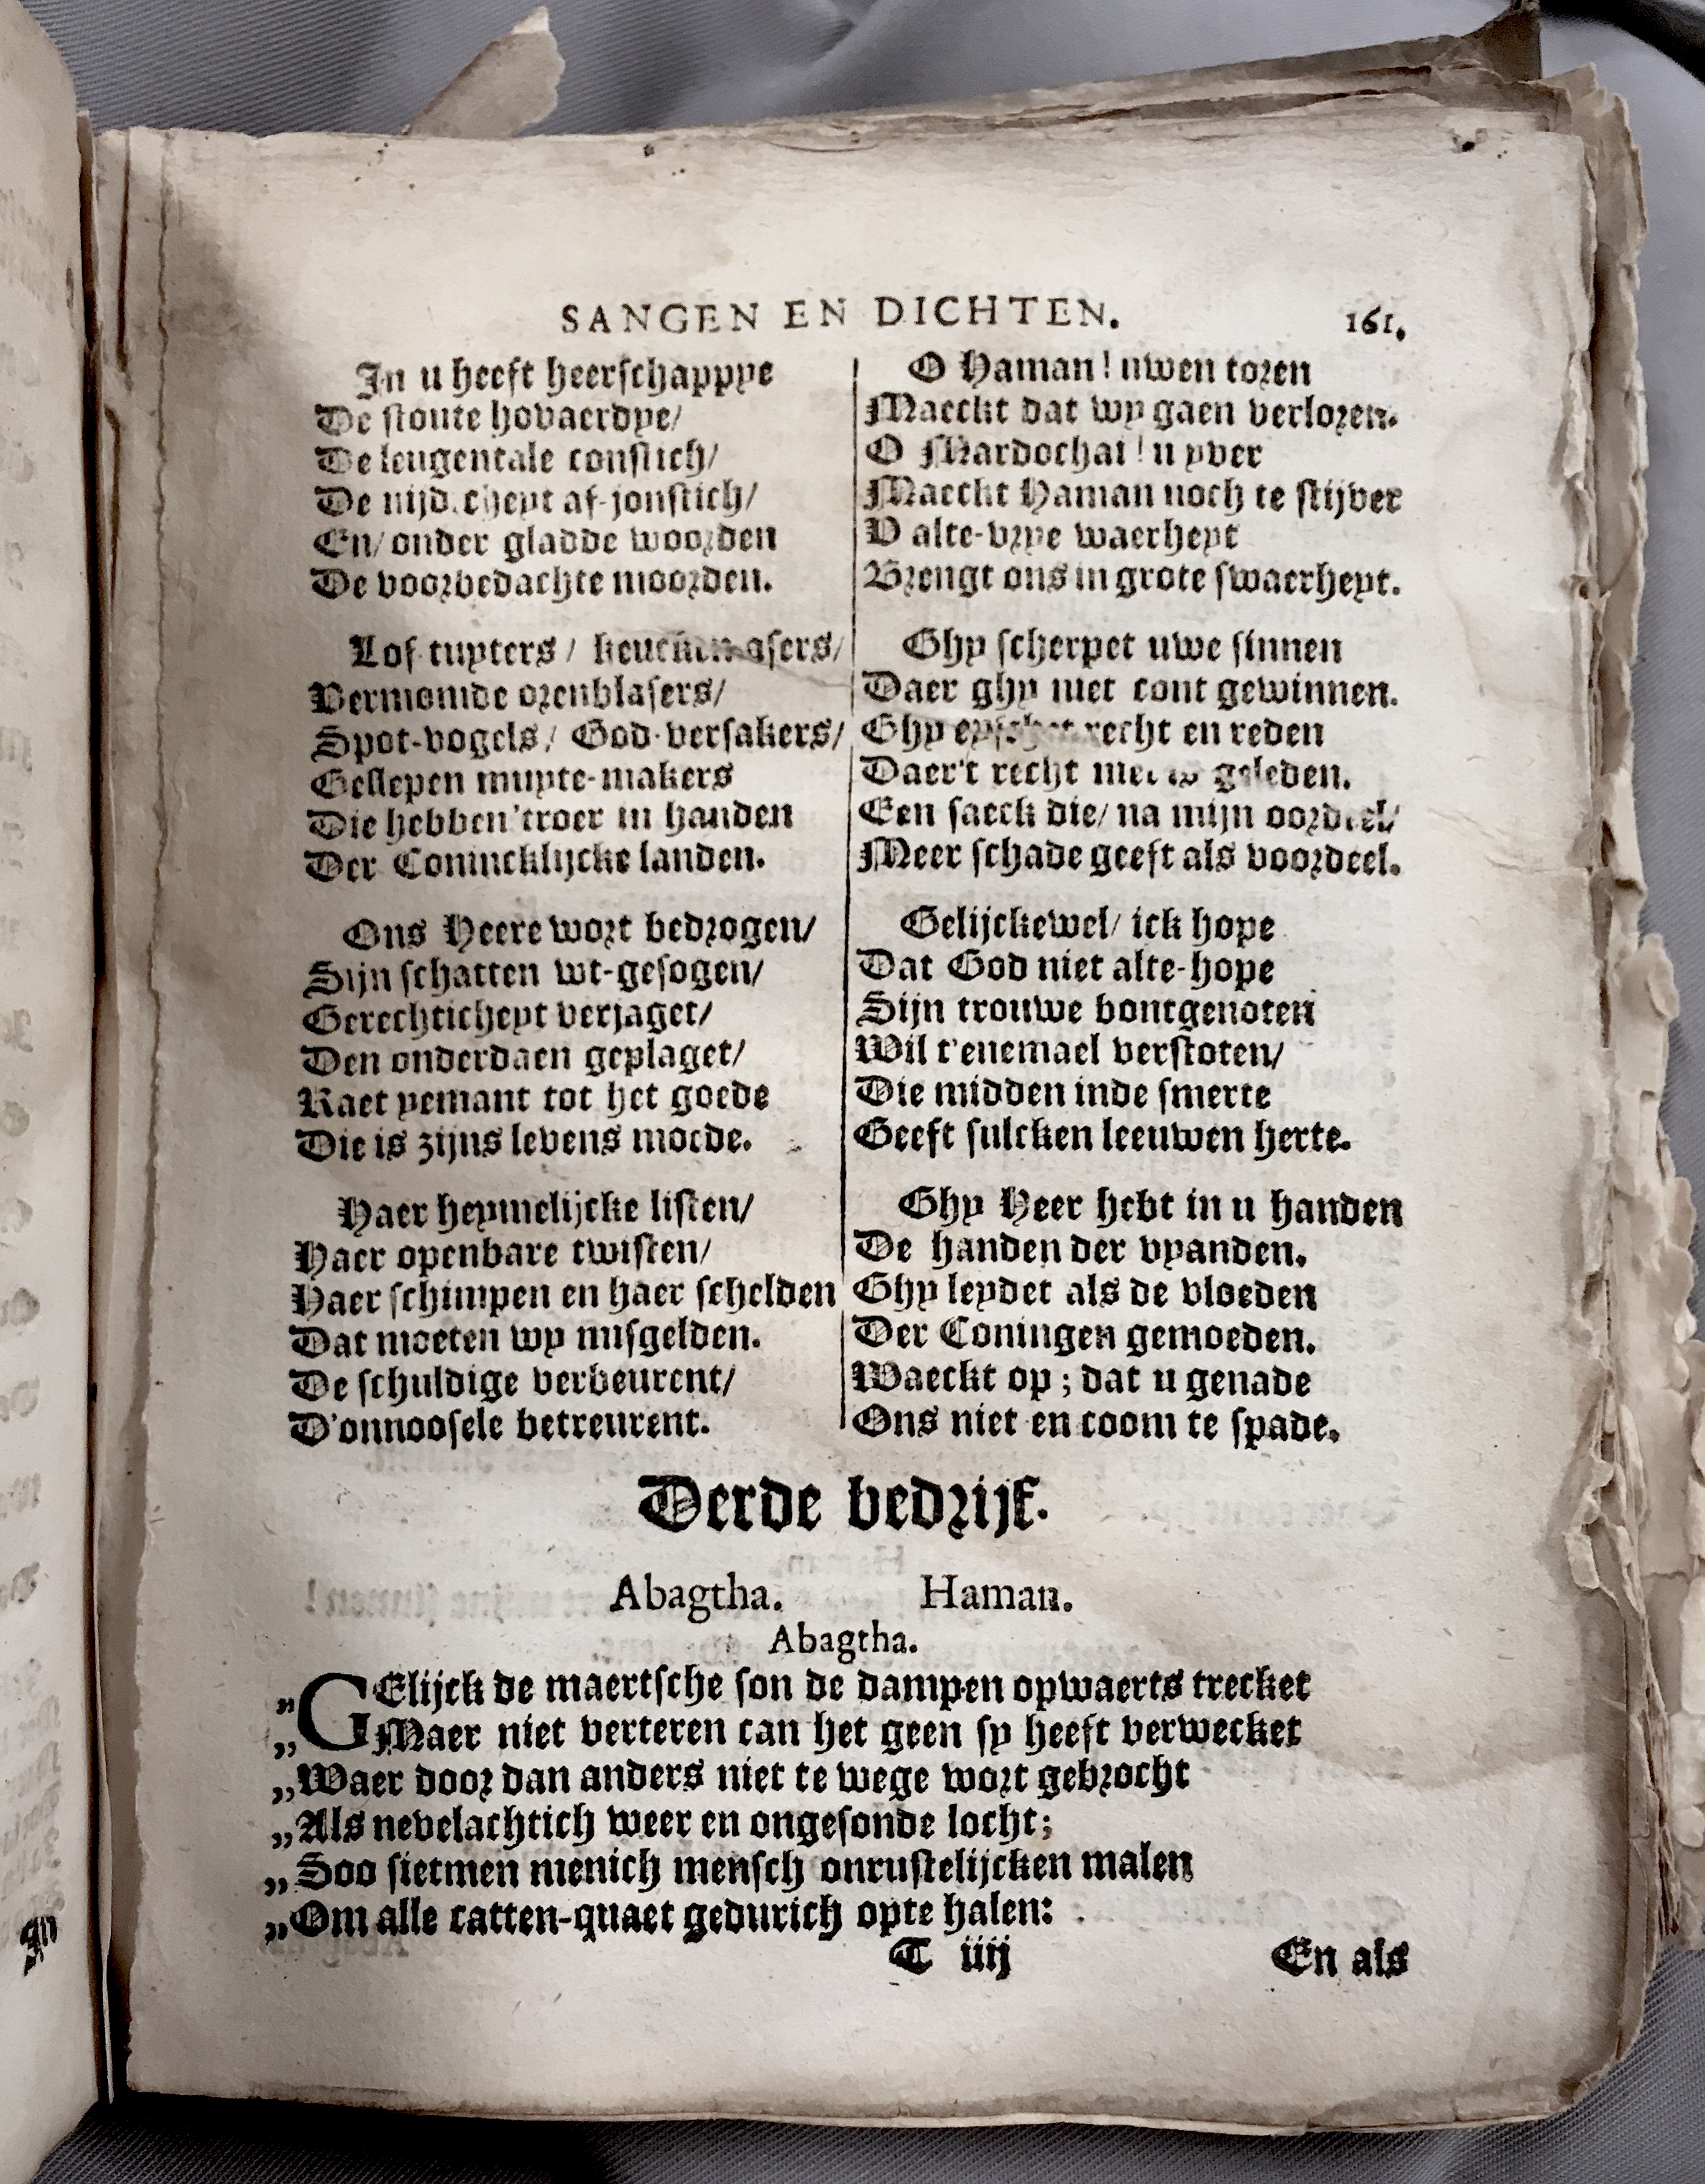 SANGEN EN DICHTEN. 161.
In u heeft heerschappye
De stoute hovaerdye/
De leugentale constich/
De nijdicheyt af-jonstich/
En/ onder gladde woorden
De voorbedachte moorden.
Lof-tuyters/
Vermomde orenblasers/
Spot-vogels/ God-versakers/
Geslepen muyte-makers
Die hebben 'troer in handen
Der Conincklijcke landen.
Ons Heere wort bedrogen/
Sijn schatten wt-gesogen/
Gerechticheyt verjaget/
Den onderdaen geplaget/
Raet yemant tot het goede
Die is zijns levens moede.
Haer heymelijcke listen/
Haer openbare twisten/
Haer schimpen en haer schelden
Dat moeten wy misgelden.
De schuldige verbeurent/
D'onnoosele betreurent.
O Haman! uwen toren
Maeckt dat wy gaen verloren.
O Mardochai! u yver
Maeckt Haman noch te stijver
V alte-vrye waerheyt
Brengt ons in grote swaerheyt.
Ghy scherpet uwe sinnen
Daer ghy niet cont gewinnen.
Ghy eysschet recht en reden
Daer't recht niet is geleden.
Een saeck die/ na mijn oordeel/
Meer schade geeft als voordeel.
Gelijckewel/ ick hope
Dat God niet alte-hope
Sijn trouwe bontgenoten
Wil t'enemael verstoten/
Die midden inde smerte
Geeft sulcken leeuwen herte.
Ghy Heer hebt in u handen
De handen der vyanden.
Ghy leydet als de vloeden
Der Coningen gemoeden.
Waeckt op; dat u genade
Ons niet en coom te spade.
Derde bedrijf.
Abagtha. Haman.
Abagtha.
„GElijck de maertsche son de dampen opwaerts trecket
„Maer niet verteren can het geen sy heeft verwecket
„Waer door dan anders niet te wege wort gebrocht
„Als nevelachtich weer en ongesonde locht;
„Soo sietmen menich mensch onrustelijcken malen
„Om alle catten-quaet gedurich opte halen:
T iiij En als